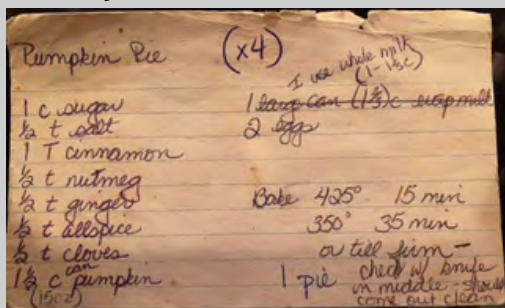 Pumpkin Pie (x4)
I use whole milk
(1-1½c)
1 c sugar
½ t salt
1 T cinnamon
½ t nutmeg
½ t ginger
½ t allspice
½ t cloves
1½ c can pumpkin
(15oz)
1 large can (1⅔)c evap milk
2 eggs
Bake 425° 15 min
350° 35 min
or till firm -
1 pie check w/ knife
in middle - should
come out clean